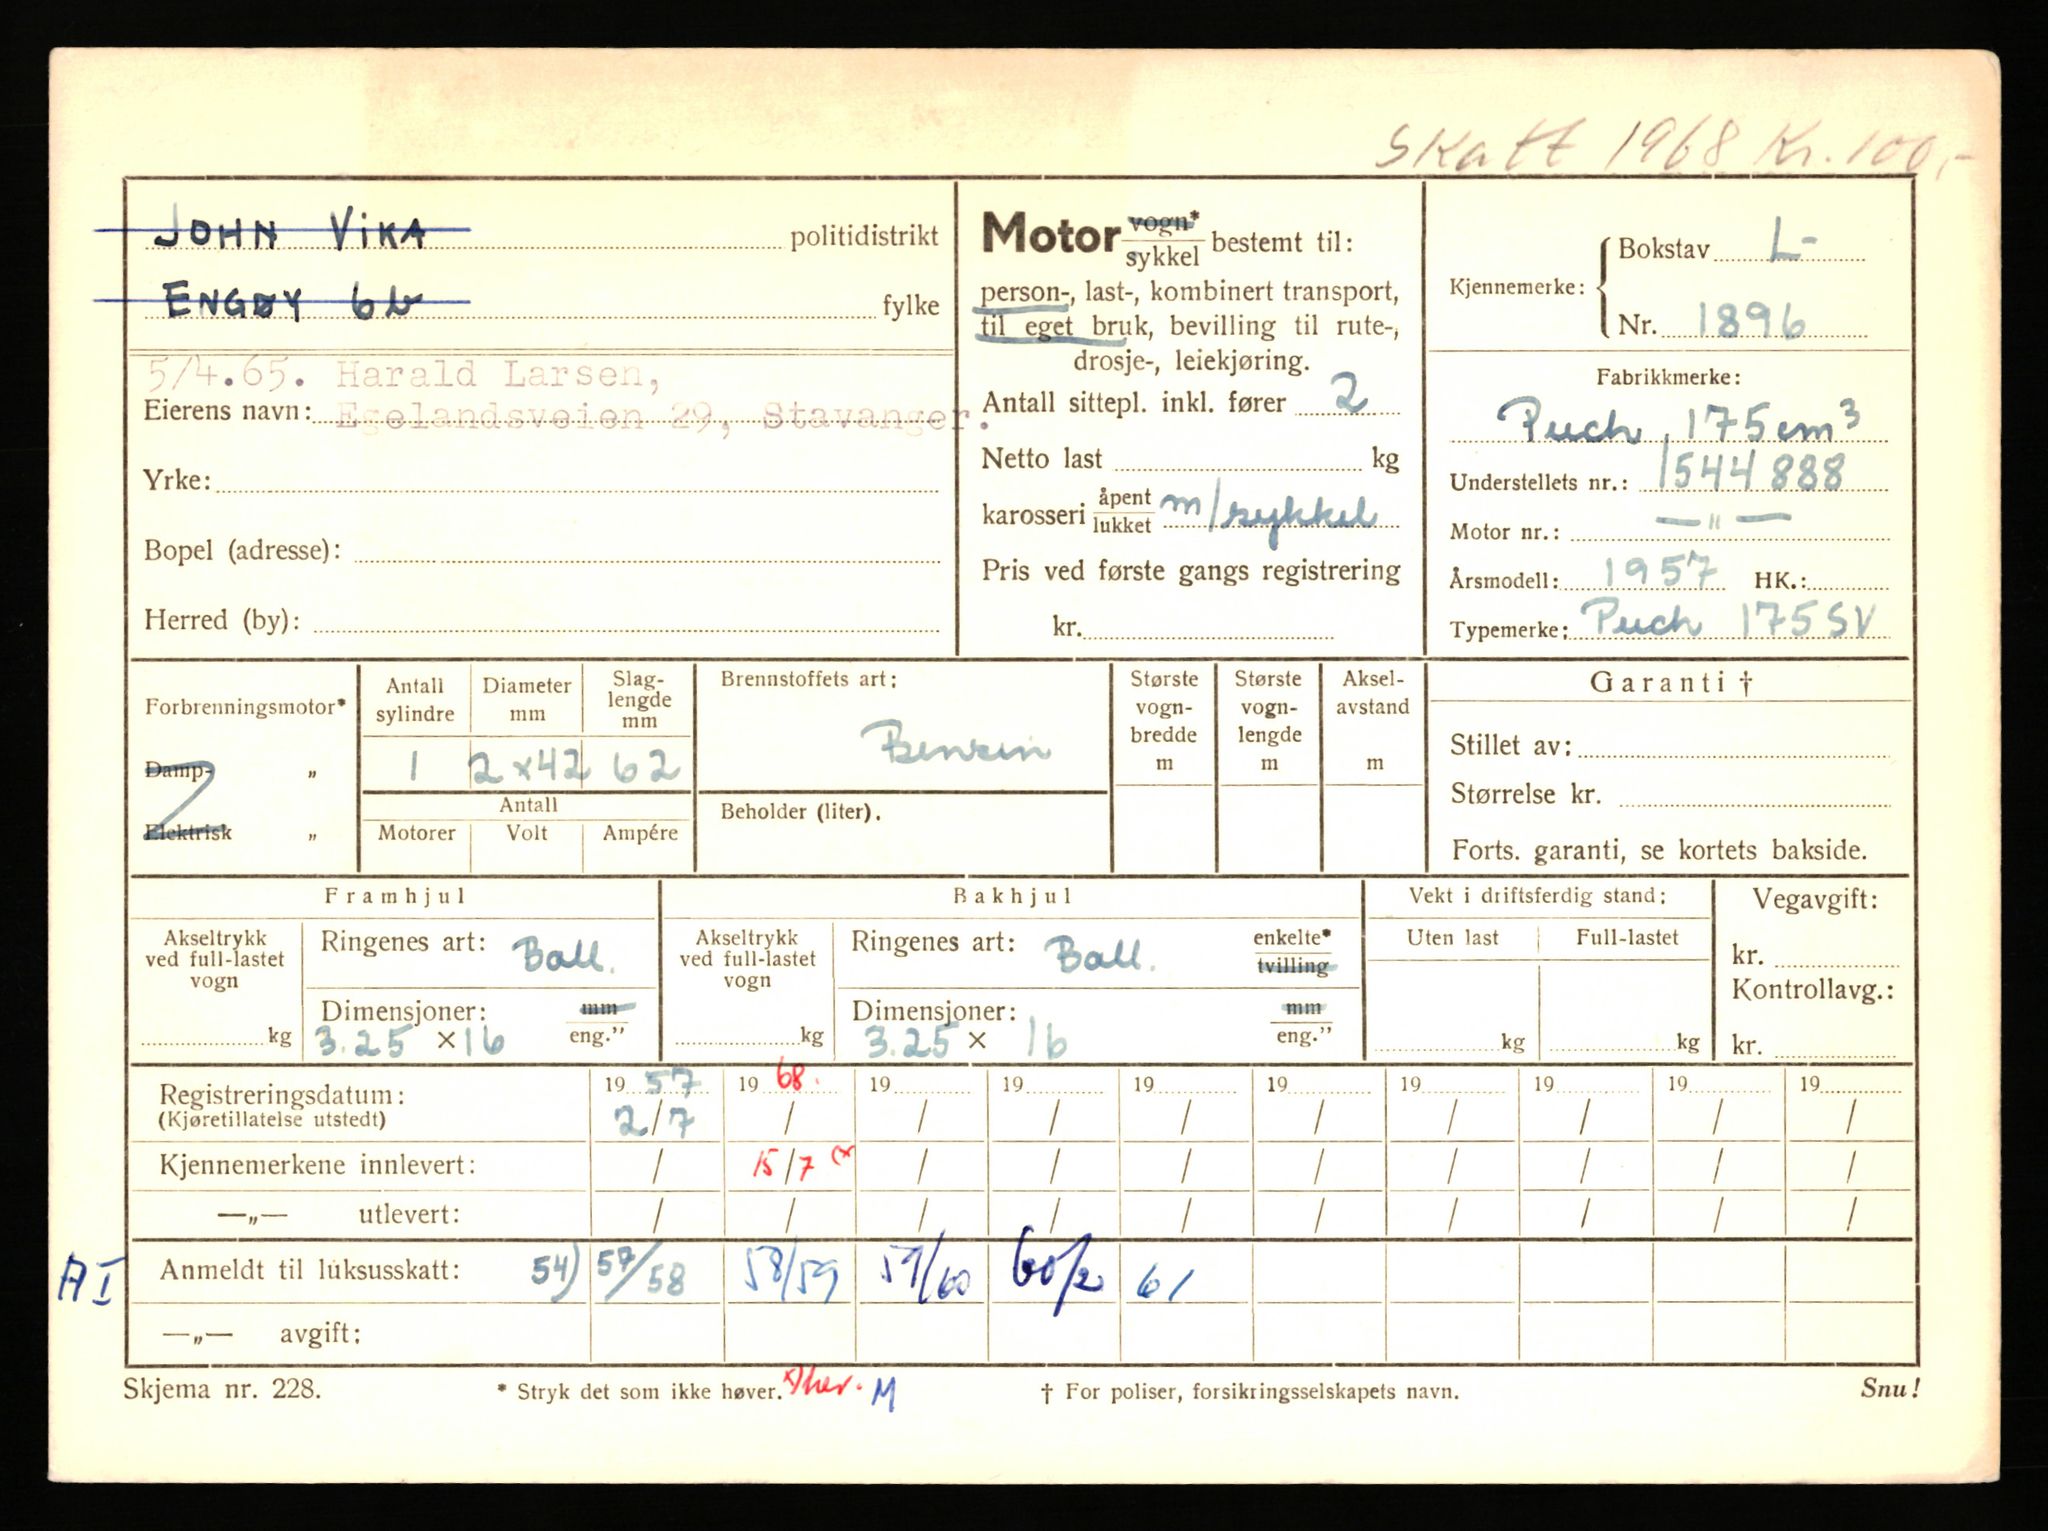 Skatt 1968 Kr. 100,-
JOHN VIKA politidistrikt
ENGØY 6b fylke
5/4.65. Harald Larsen,
Eierens navn: Egelandsveien 29, Stavanger.
Yrke:
Bopel (adresse):
Herred (by):
Motor vogn* / sykkel bestemt til:
person-, last-, kombinert transport,
til eget bruk, bevilling til rute-,
drosje-, leiekjøring.
Antall sittepl. inkl. fører 2
Netto last kg
karosseri åpent / lukket m/sykkel
Pris ved første gangs registrering
kr.
Kjennemerke: Bokstav L-
Nr. 1896
Fabrikkmerke:
Puch 175 cm³
Understellets nr.: 1544888
Motor nr.: — " —
Årsmodell: 1957 HK.:
Typemerke: Puch 175 SV
Forbrenningsmotor*
Damp- „
Elektrisk „
Antall sylindre Diameter mm Slag-lengde mm
1 2x42 62
Antall
Motorer Volt Ampére
Brennstoffets art:
Bensin
Beholder (liter).
Største vogn-bredde m
Største vogn-lengde m
Aksel-avstand m
Garanti †
Stillet av:
Størrelse kr.
Forts. garanti, se kortets bakside.
Framhjul
Akseltrykk ved full-lastet vogn
kg
Ringenes art: Ball.
Dimensjoner: mm / eng."
3.25 x 16
Bakhjul
Akseltrykk ved full-lastet vogn
kg
Ringenes art: Ball. enkelte* / tvilling
Dimensjoner: mm / eng."
3.25 x 16
Vekt i driftsferdig stand:
Uten last Full-lastet
kg kg
Vegavgift:
kr.
Kontrollavg.:
kr.
Registreringsdatum: 19 57 19 68. 19 19 19 19 19 19 19 19
(Kjøretillatelse utstedt) 2/7 / / / / / / / / /
Kjennemerkene innlevert: / 15/7 (x / / / / / / / /
—„— utlevert: / / / / / / / / / /
A I Anmeldt til luksusskatt: 54) 57/58 58/59 59/60 60/2 61
—„— avgift:
Skjema nr. 228. * Stryk det som ikke høver. x) her. M † For poliser, forsikringsselskapets navn. Snu!